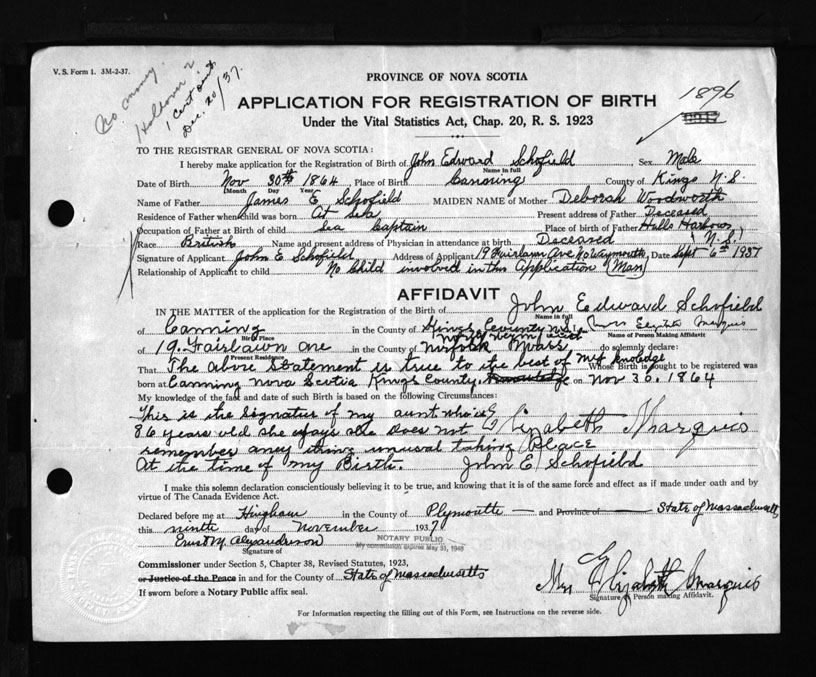 V. S. Form 1. 3M-2-37.
No money.
Holeover 2
1 Cert out
Dec. 20/37.
PROVINCE OF NOVA SCOTIA
APPLICATION FOR REGISTRATION OF BIRTH
1896
Under the Vital Statistics Act, Chap. 20, R. S. 1923
TO THE REGISTRAR GENERAL OF NOVA SCOTIA:
I hereby make application for the Registration of Birth of John Edward Schofield, Sex Male
Name in full
Date of Birth Nov 30th 1864, Place of Birth Canning County of Kings N.S.
Month Day Year
Name of Father James E Schofield MAIDEN NAME of Mother Deborah Woodworth
Residence of Father when child was born At sea Present address of Father Deceased
Occupation of Father at Birth of child Sea Captain Place of birth of Father Halls Harbour
Race British Name and present address of Physician in attendance at birth Deceased (N.S.)
Signature of Applicant John E Schofield Address of Applicant 19 Fairlawn Ave No Weymouth, Date Sept 6th 1937
Relationship of Applicant to child No Child involved in this Application (Man)
AFFIDAVIT
IN THE MATTER of the application for the Registration of the Birth of John Edward Schofield
Name in full
of Canning in the County of Kings County N.S. I, Mrs Elizabeth Marquis
Birth Place Name of Person Making Affidavit
North Weymouth
of 19 Fairlawn Ave in the County of Norfolk Mass do solemnly declare:
Present Residence
That The above Statement is true to the best of my knoledge Whose Birth is sought to be registered was
born at Canning Nova Scotia Kings County on Nov 30. 1864
My knowledge of the fact and date of such Birth is based on the following Circumstances:
This is the Signatur of my aunt who is
86 years old she says she does not Elizabeth Marquis
remember any thing unusual taking Place
At the time of my Birth. John E Schofield
I make this solemn declaration conscientiously believing it to be true, and knowing that it is of the same force and effect as if made under oath and by
virtue of The Canada Evidence Act.
Declared before me at Hingham in the County of Plymouth and Province of State of Massachusetts
this ninth day of November 1937
Ernest M. Alexanderson NOTARY PUBLIC
Signature of My commission expires May 1940
Commissioner under Section 5, Chapter 38, Revised Statutes, 1923,
or Justice of the Peace in and for the County of State of Massachusetts
If sworn before a Notary Public affix seal.
Mrs Elizabeth Marquis
Signature of Person making Affidavit.
For Information respecting the filling out of this Form, see Instructions on the reverse side.